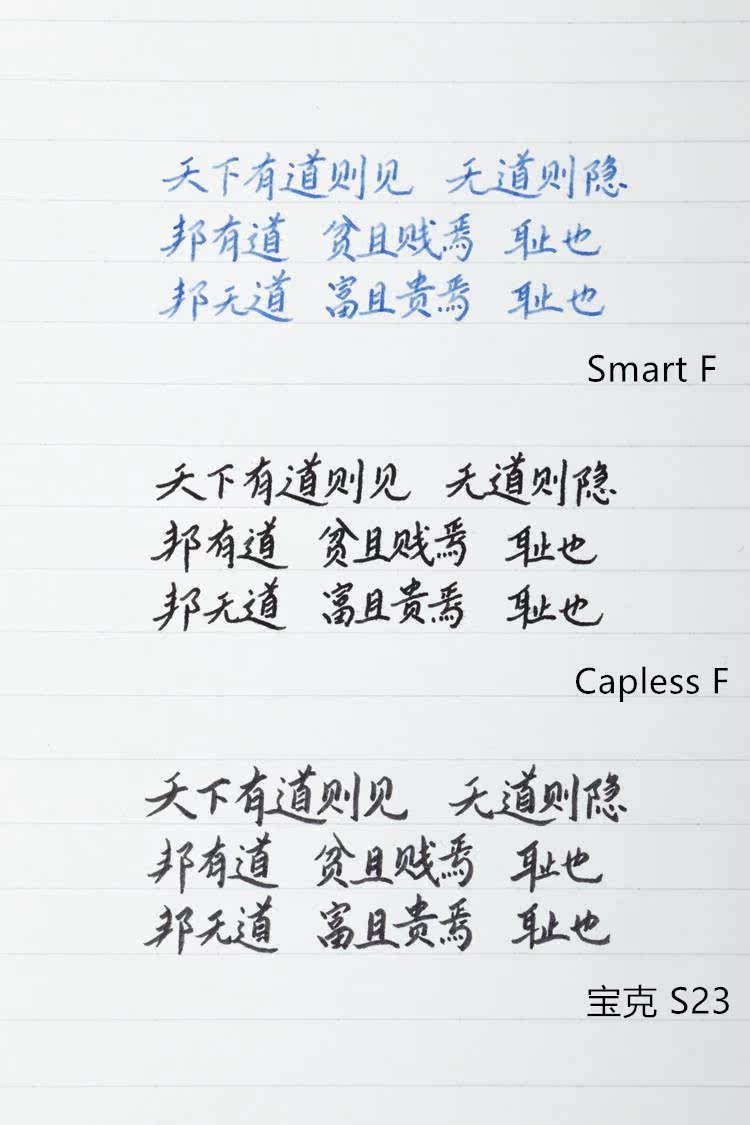 天下有道则见 无道则隐
邦有道 贫且贱焉 耻也
邦无道 富且贵焉 耻也
Smart F
天下有道则见 无道则隐
邦有道 贫且贱焉 耻也
邦无道 富且贵焉 耻也
Capless F
天下有道则见 无道则隐
邦有道 贫且贱焉 耻也
邦无道 富且贵焉 耻也
宝克 S23